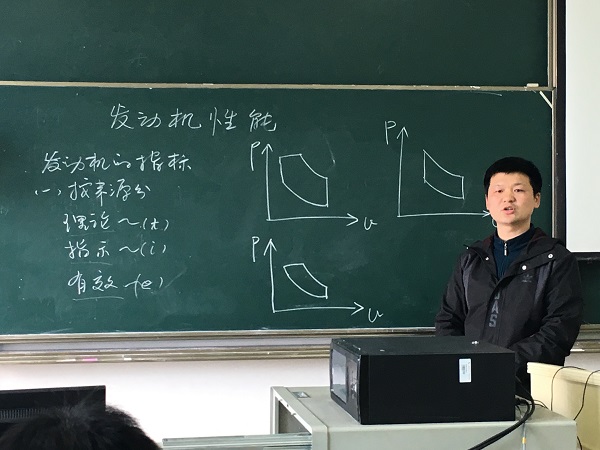 发动机性能
发动机的指标
(一)按来源分
理论~(t)
指示~(i)
有效~(e)
P
v
P
P
v
AS